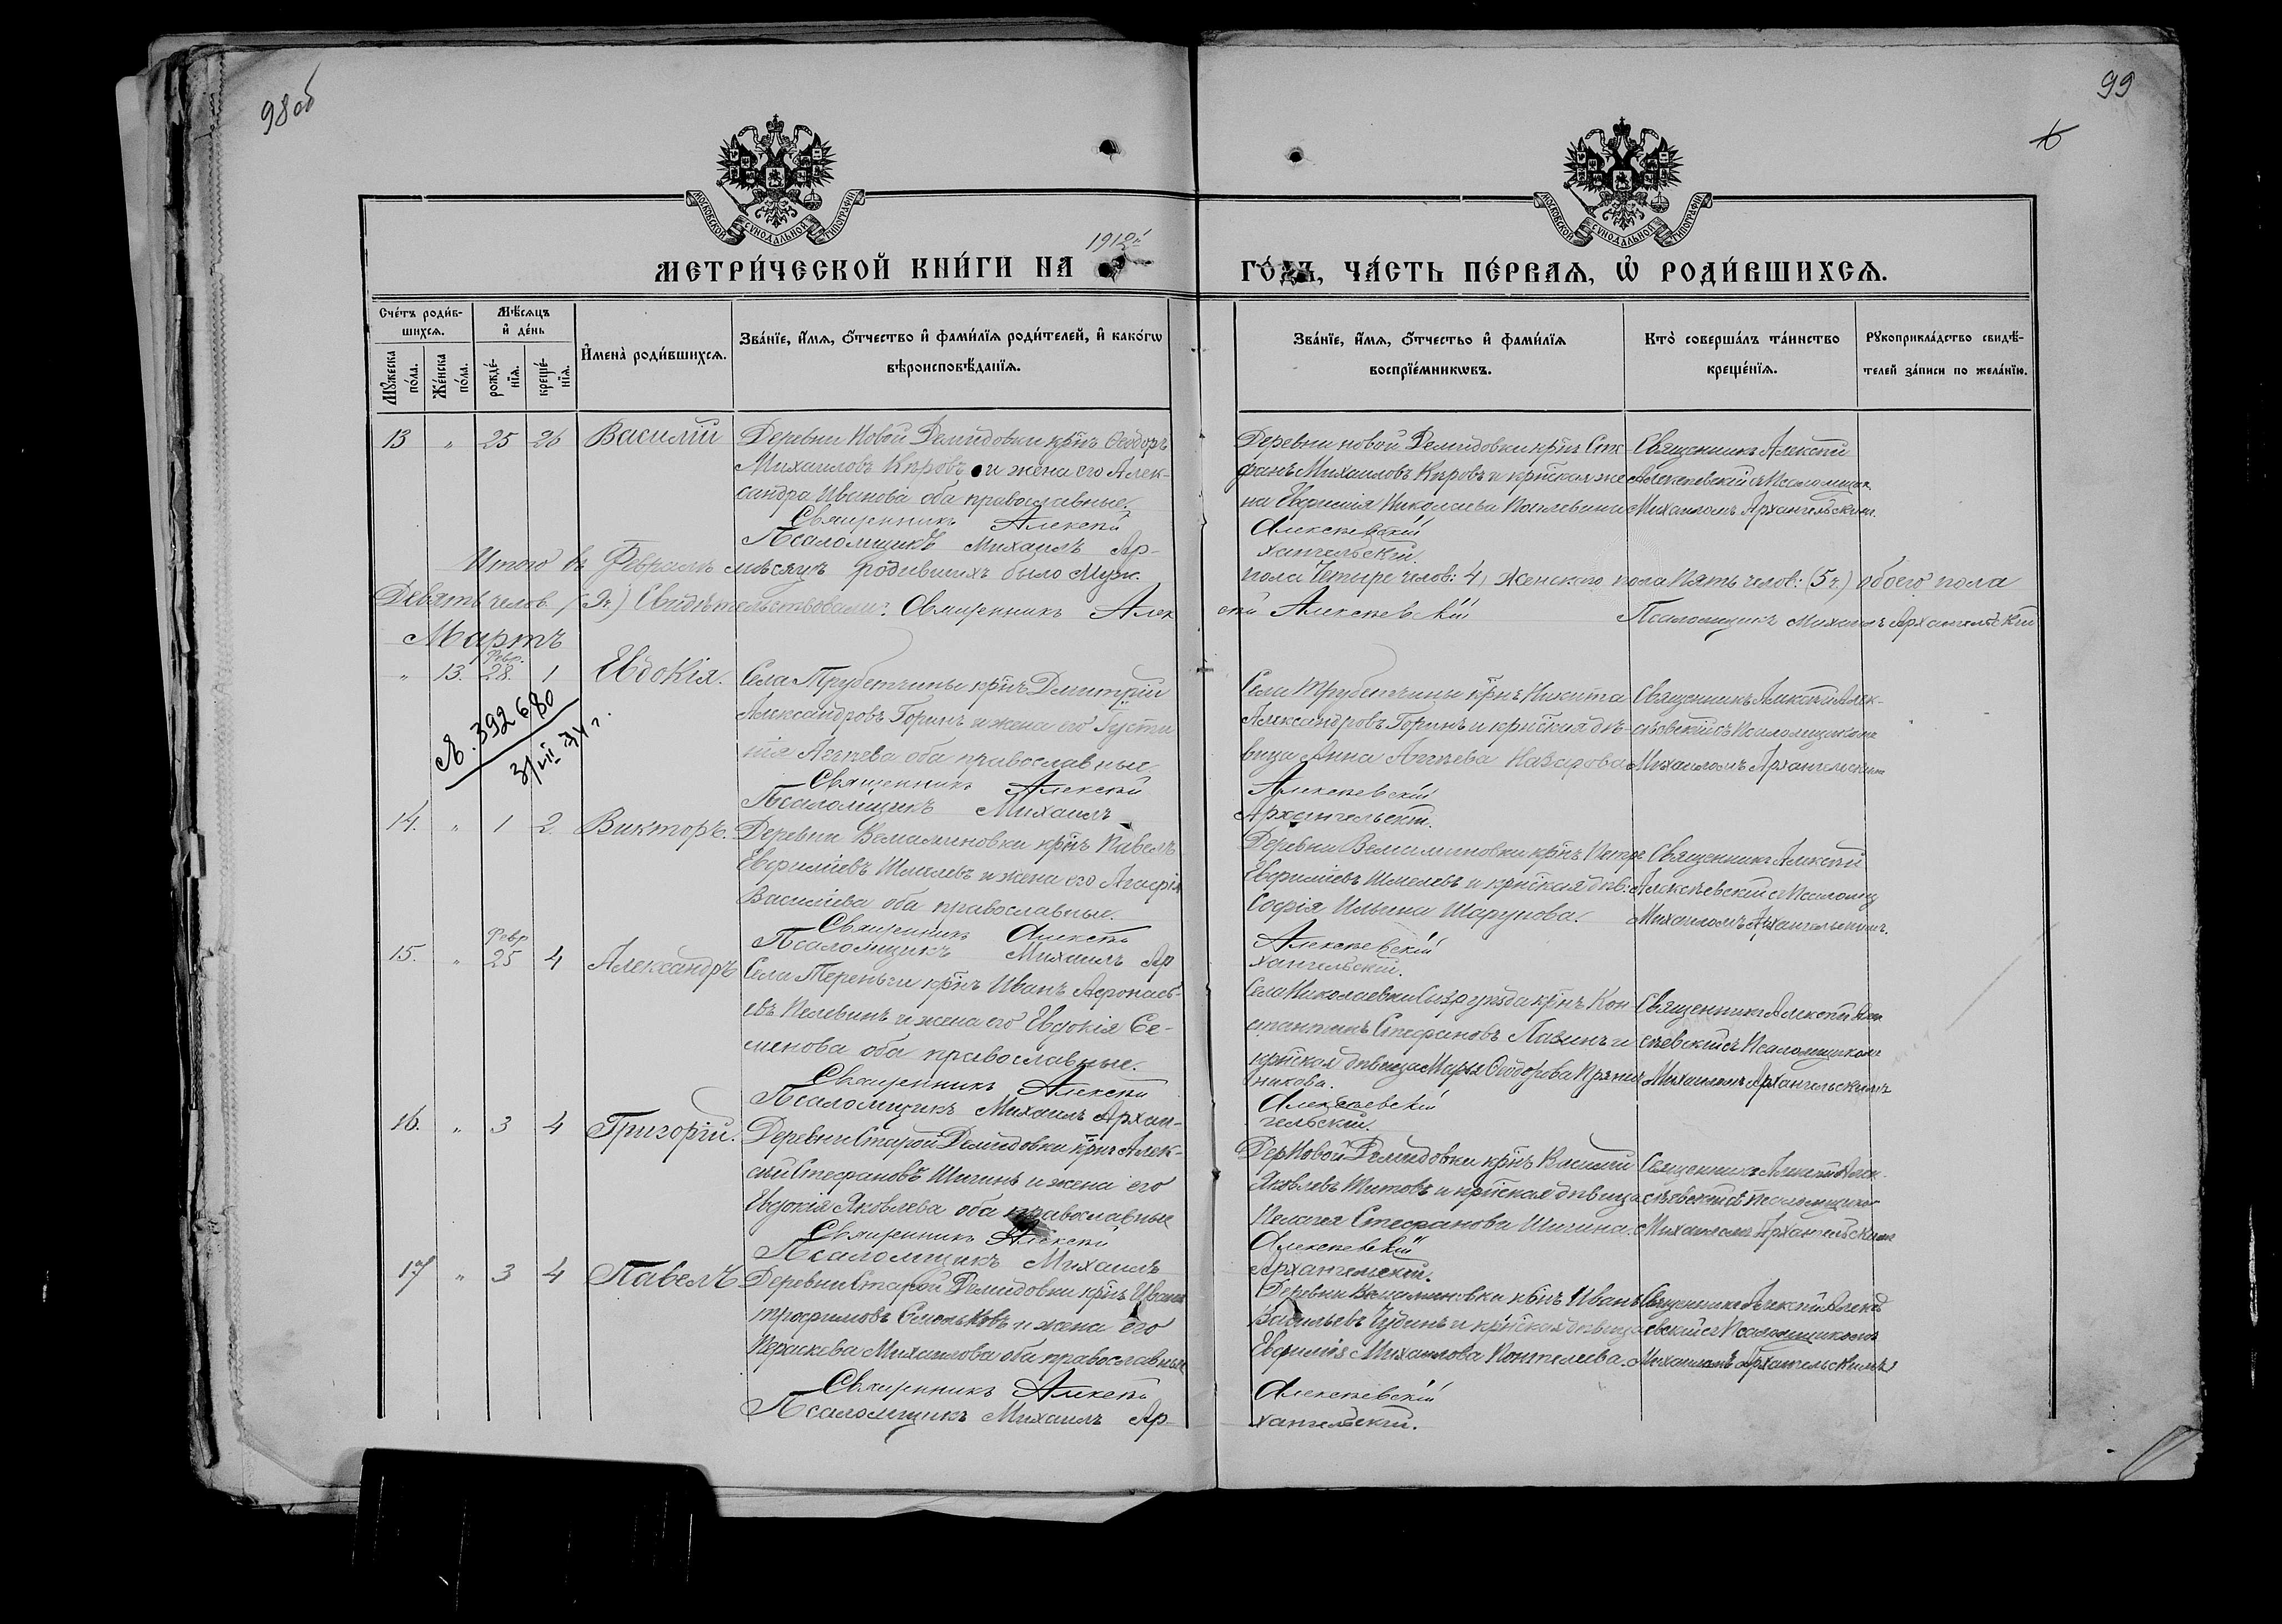 98 об
99
6
МОСКОВСКОЙ СѴНОДАЛЬНОЙ ТИПОГРАФІИ
МОСКОВСКОЙ СѴНОДАЛЬНОЙ ТИПОГРАФІИ
1912й
МЕТРИ́ЧЕСКОЙ КНИ́ГИ НА
ГО́ДЪ, ЧА́СТЬ ПЕ́РВАѦ, Ѡ҆ РОДИ́ВШИХСѦ.
Сче́тъ роди́в-
шихсѧ.
Мꙋ́жеска по́ла.
Же́нска по́ла.
Мѣ́сѧцъ
и҆ де́нь
рожде́-
нїѧ.
креще́-
нїѧ.
И҆мена̀ роди́вшихсѧ.
Зва́нїе, и҆́мѧ, ѻ҆́тчество и҆ фами́лїѧ роди́телей, и҆ како́гѡ
вѣроисповѣ́данїѧ.
Зва́нїе, и҆́мѧ, ѻ҆́тчестьо и҆ фами́лїѧ
воспрїе́мникѡвъ.
Кто̀ соверша́лъ та́инство
креще́нїѧ.
Рꙋкоприкла́дство свидѣ́-
телей за́писи по жела́нїю.
13 " 25 26 Василій
Деревни Новой Демидовки кр̃нъ Ѳеодоръ
Михаиловъ Кировъ и жена его Алек-
сандра Иванова оба православные.
Священникъ Алексѣй
Псаломщикъ Михаилъ Ар-
Деревни новой Демидовки кр̃нъ Сте
фанъ Михаиловъ Кировъ и кр̃нская же
на Евфимія Николаева
Алексѣевскій
хангельскій.
Священникъ Алексѣй
Алексѣевскій съ Псаломщик
Михаиломъ Архангельскимъ.
Итого въ Февралѣ мѣсяцѣ родившихъ было Муж.
пола Четыре челов: 4, Женского пола Пять челов: (5 ч.) обоего пола
Девять челов. (9 ч.) Свидѣтельствовали: Священникъ Алек
сѣй Алексѣевскій
Псаломщикъ Михаилъ Архангельскій
Мартъ
Февр.
" 13. 28. 1 Евдокія.
№. 392680
3/VII 71 г.
Села Трубетчины кр̃нъ Дмитрій
Александровъ Горинъ и жена его Іусти
нія Агѣева оба православные
Священникъ Алексѣй
Псаломщикъ Михаилъ
Села Трубетчины кр̃нъ Никита
Александровъ Горинъ и кр̃нская дѣ-
вица Анна Агѣева Назарова
Алексѣевскій
Архангельскій.
Священникъ Алексѣй Алек-
сѣевскій съ Псаломщикомъ
Михаиломъ Архангельскимъ
14. " 1 2. Викторъ.
Деревни Вельяминовки кр̃нъ Павелъ
Евфиміевъ Шмелевъ и жена его Агафія
Василіева оба православные.
Священникъ Алексѣй
Псаломщикъ Михаилъ Ар
Деревни Вельяминовки кр̃нъ Петръ
Евфиміевъ Шмелевъ и кр̃нская дѣв:
Софія Ильина Шарунова.
Алексѣевскій
хангельскій.
Священникъ Алексѣй
Алексѣевскій съ Псаломщ
Михаиломъ Архангельскимъ.
Февр
15. " 25 4 Александръ
Села Тереньги кр̃нъ Иванъ Афонась-
евъ Пелевинъ и жена его Евдокія Се-
менова оба православные.
Священникъ Алексѣй
Псаломщикъ Михаилъ Архан-
Села Николаевки Сызр уѣзда кр̃нъ Кон
стантинъ Стефановъ Лавинъ и
кр̃нская дѣвица Марія Ѳеодорова Прянич
никова.
Алексѣевскій
гельскій.
Священникъ Алексѣй Алек
сѣевскій съ Псаломщикомъ
Михаиломъ Архангельскимъ
16. " 3 4 Григорій.
Деревни Старой Демидовки кр̃нъ Алек-
сѣй Стефановъ Шигинъ и жена его
Евдокія Яковлева оба православные
Священникъ Алексѣй
Псаломщикъ Михаилъ
Дер Новой Демидовки кр̃нъ Василій
Яковлевъ Титовъ и кр̃нская дѣвица
Пелагея Стефанова Шигина.
Алексѣевскій
Архангельскій.
Священникъ Алексѣй Алек-
сѣевскій съ псаломщикомъ
Михаиломъ Архангельскимъ
17 " 3 4 Павелъ
Деревни Старой Демидовки кр̃нъ Иванъ
Трофимовъ и жена его
Параскева Михаилова оба православные
Священникъ Алексѣй
Псаломщикъ Михаилъ Ар-
Деревни Вельяминовки кр̃нъ Иванъ
Васильевъ Чудинъ и кр̃нская дѣвица
Евфимія Михаилова Понтелеева.
Алексѣевскій
хангельскій.
Священникъ Алексѣй Алексѣ
евскій съ Псаломщикомъ
Михаиломъ Архангельскимъ